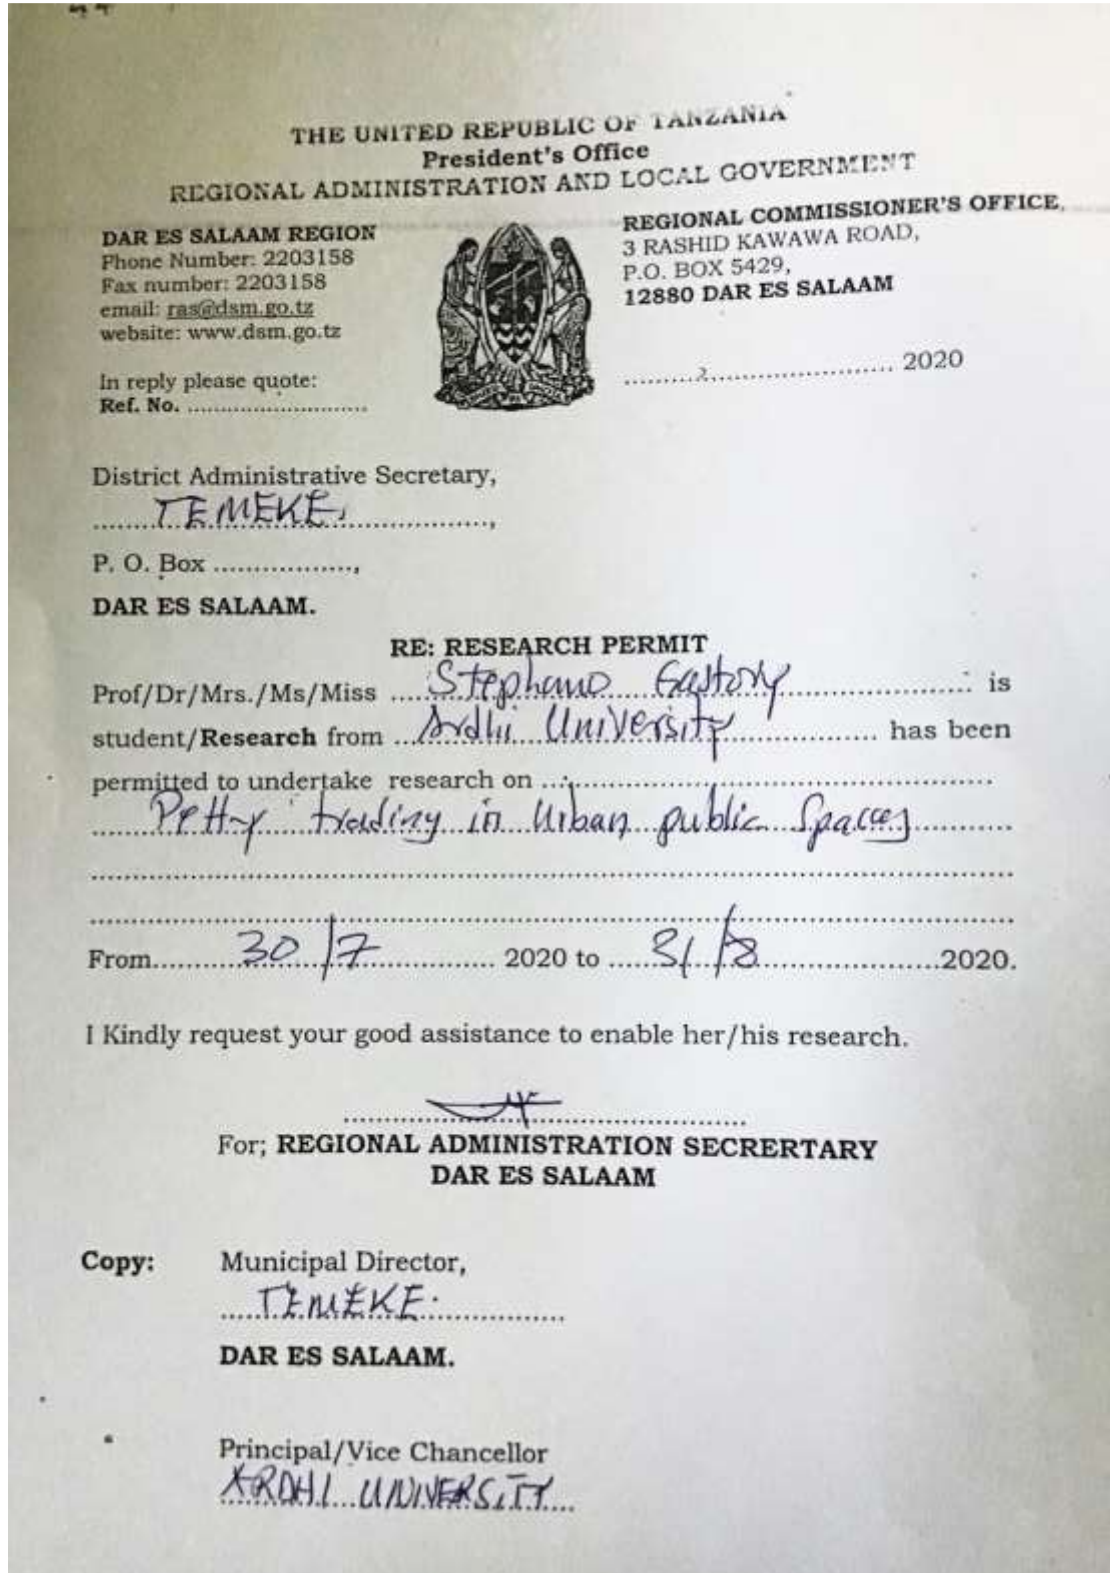 THE UNITED REPUBLIC OF TANZANIA
President's Office
REGIONAL ADMINISTRATION AND LOCAL GOVERNMENT
DAR ES SALAAM REGION
Phone Number: 2203158
Fax number: 2203158
email: ras@dsm.go.tz
website: www.dsm.go.tz
In reply please quote:
Ref. No. ..............................
REGIONAL COMMISSIONER'S OFFICE,
3 RASHID KAWAWA ROAD,
P.O. BOX 5429,
12880 DAR ES SALAAM
.......................................... 2020
District Administrative Secretary,
TEMEKE,
P. O. Box ..................,
DAR ES SALAAM.
RE: RESEARCH PERMIT
Prof/Dr/Mrs./Ms/Miss Stephano Gastory is
student/Research from Ardhi University has been
permitted to undertake research on ..................................................
Petty trading in Urban public Spaces
From 30/7 2020 to 31/8 2020.
I Kindly request your good assistance to enable her/his research.
For; REGIONAL ADMINISTRATION SECRERTARY
DAR ES SALAAM
Copy: Municipal Director,
TEMEKE.
DAR ES SALAAM.
Principal/Vice Chancellor
ARDHI UNIVERSITY